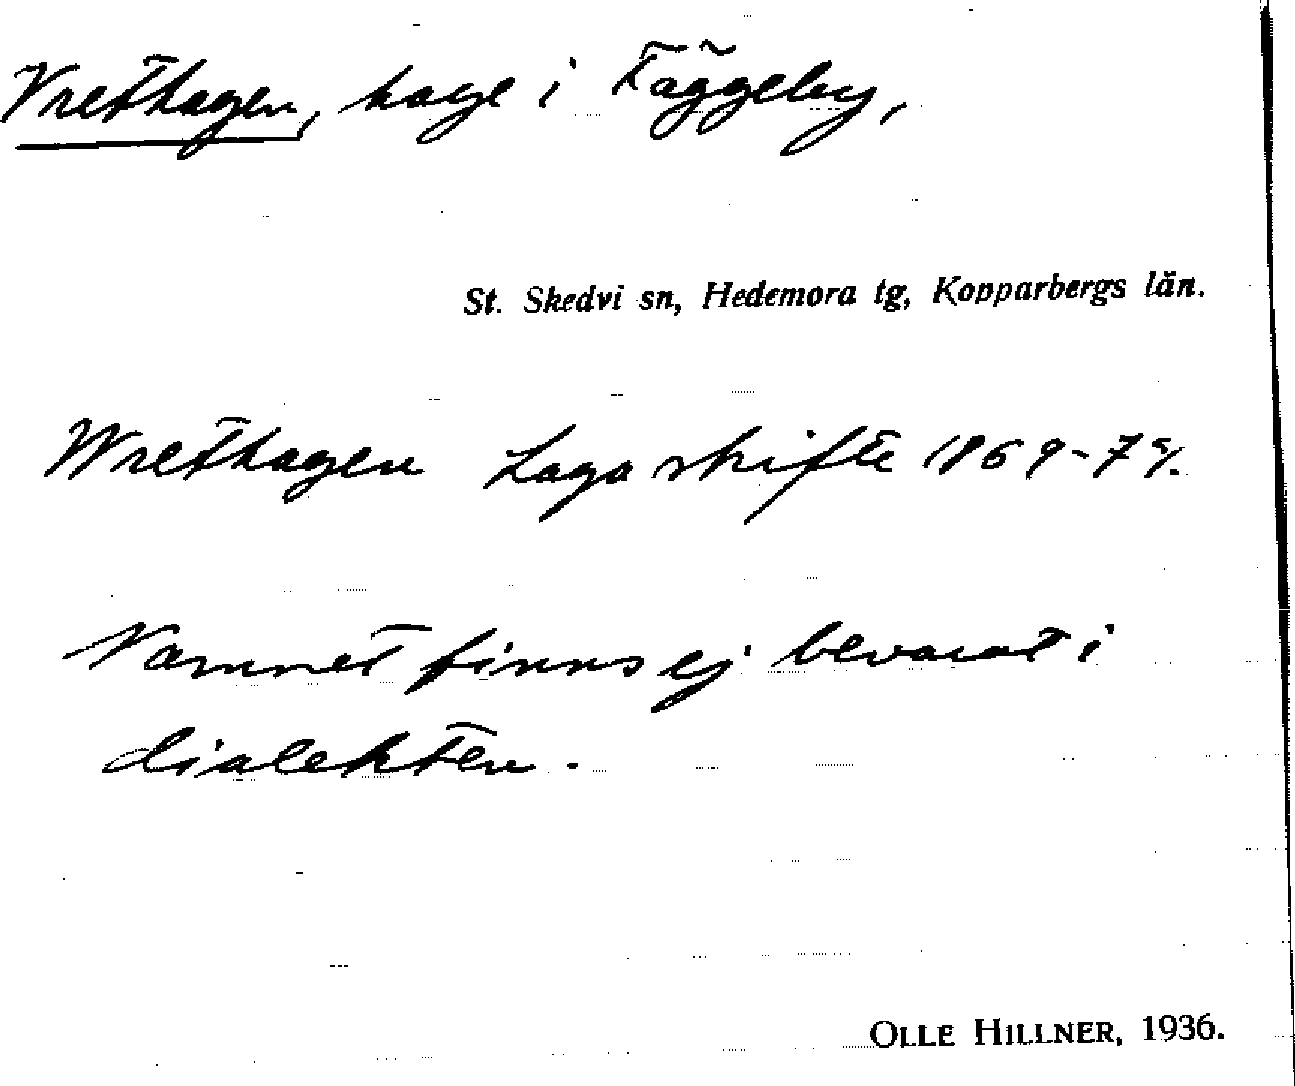 Vrethagen, hage i Täggeby,
St. Skedvi sn, Hedemora tg, Kopparbergs län.
Wrethagen Laga skifte 1869-74.
Namnet finns ej bevarat i
dialekten.
OLLE HILLNER, 1936.